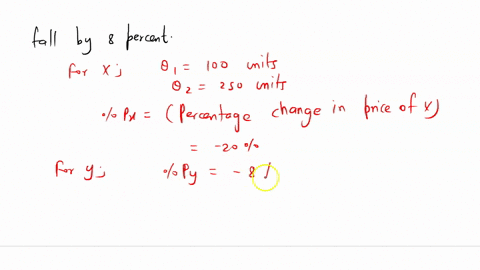 fall by 8 percent.
for x; θ1 = 100 units
θ2 = 250 units
% Px = (Percentage change in price of x)
= -20 %
for y; % Py = - 8 /